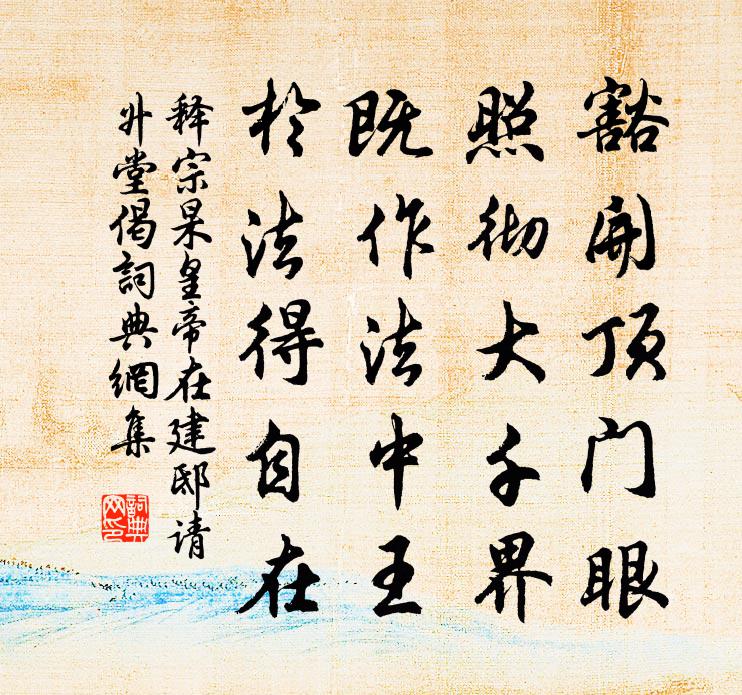 豁開顶门眼
照彻大千界
既作法中王
於法得自在
释宗杲皇帝在建邸请
升堂偈詞典網集
詞典网印